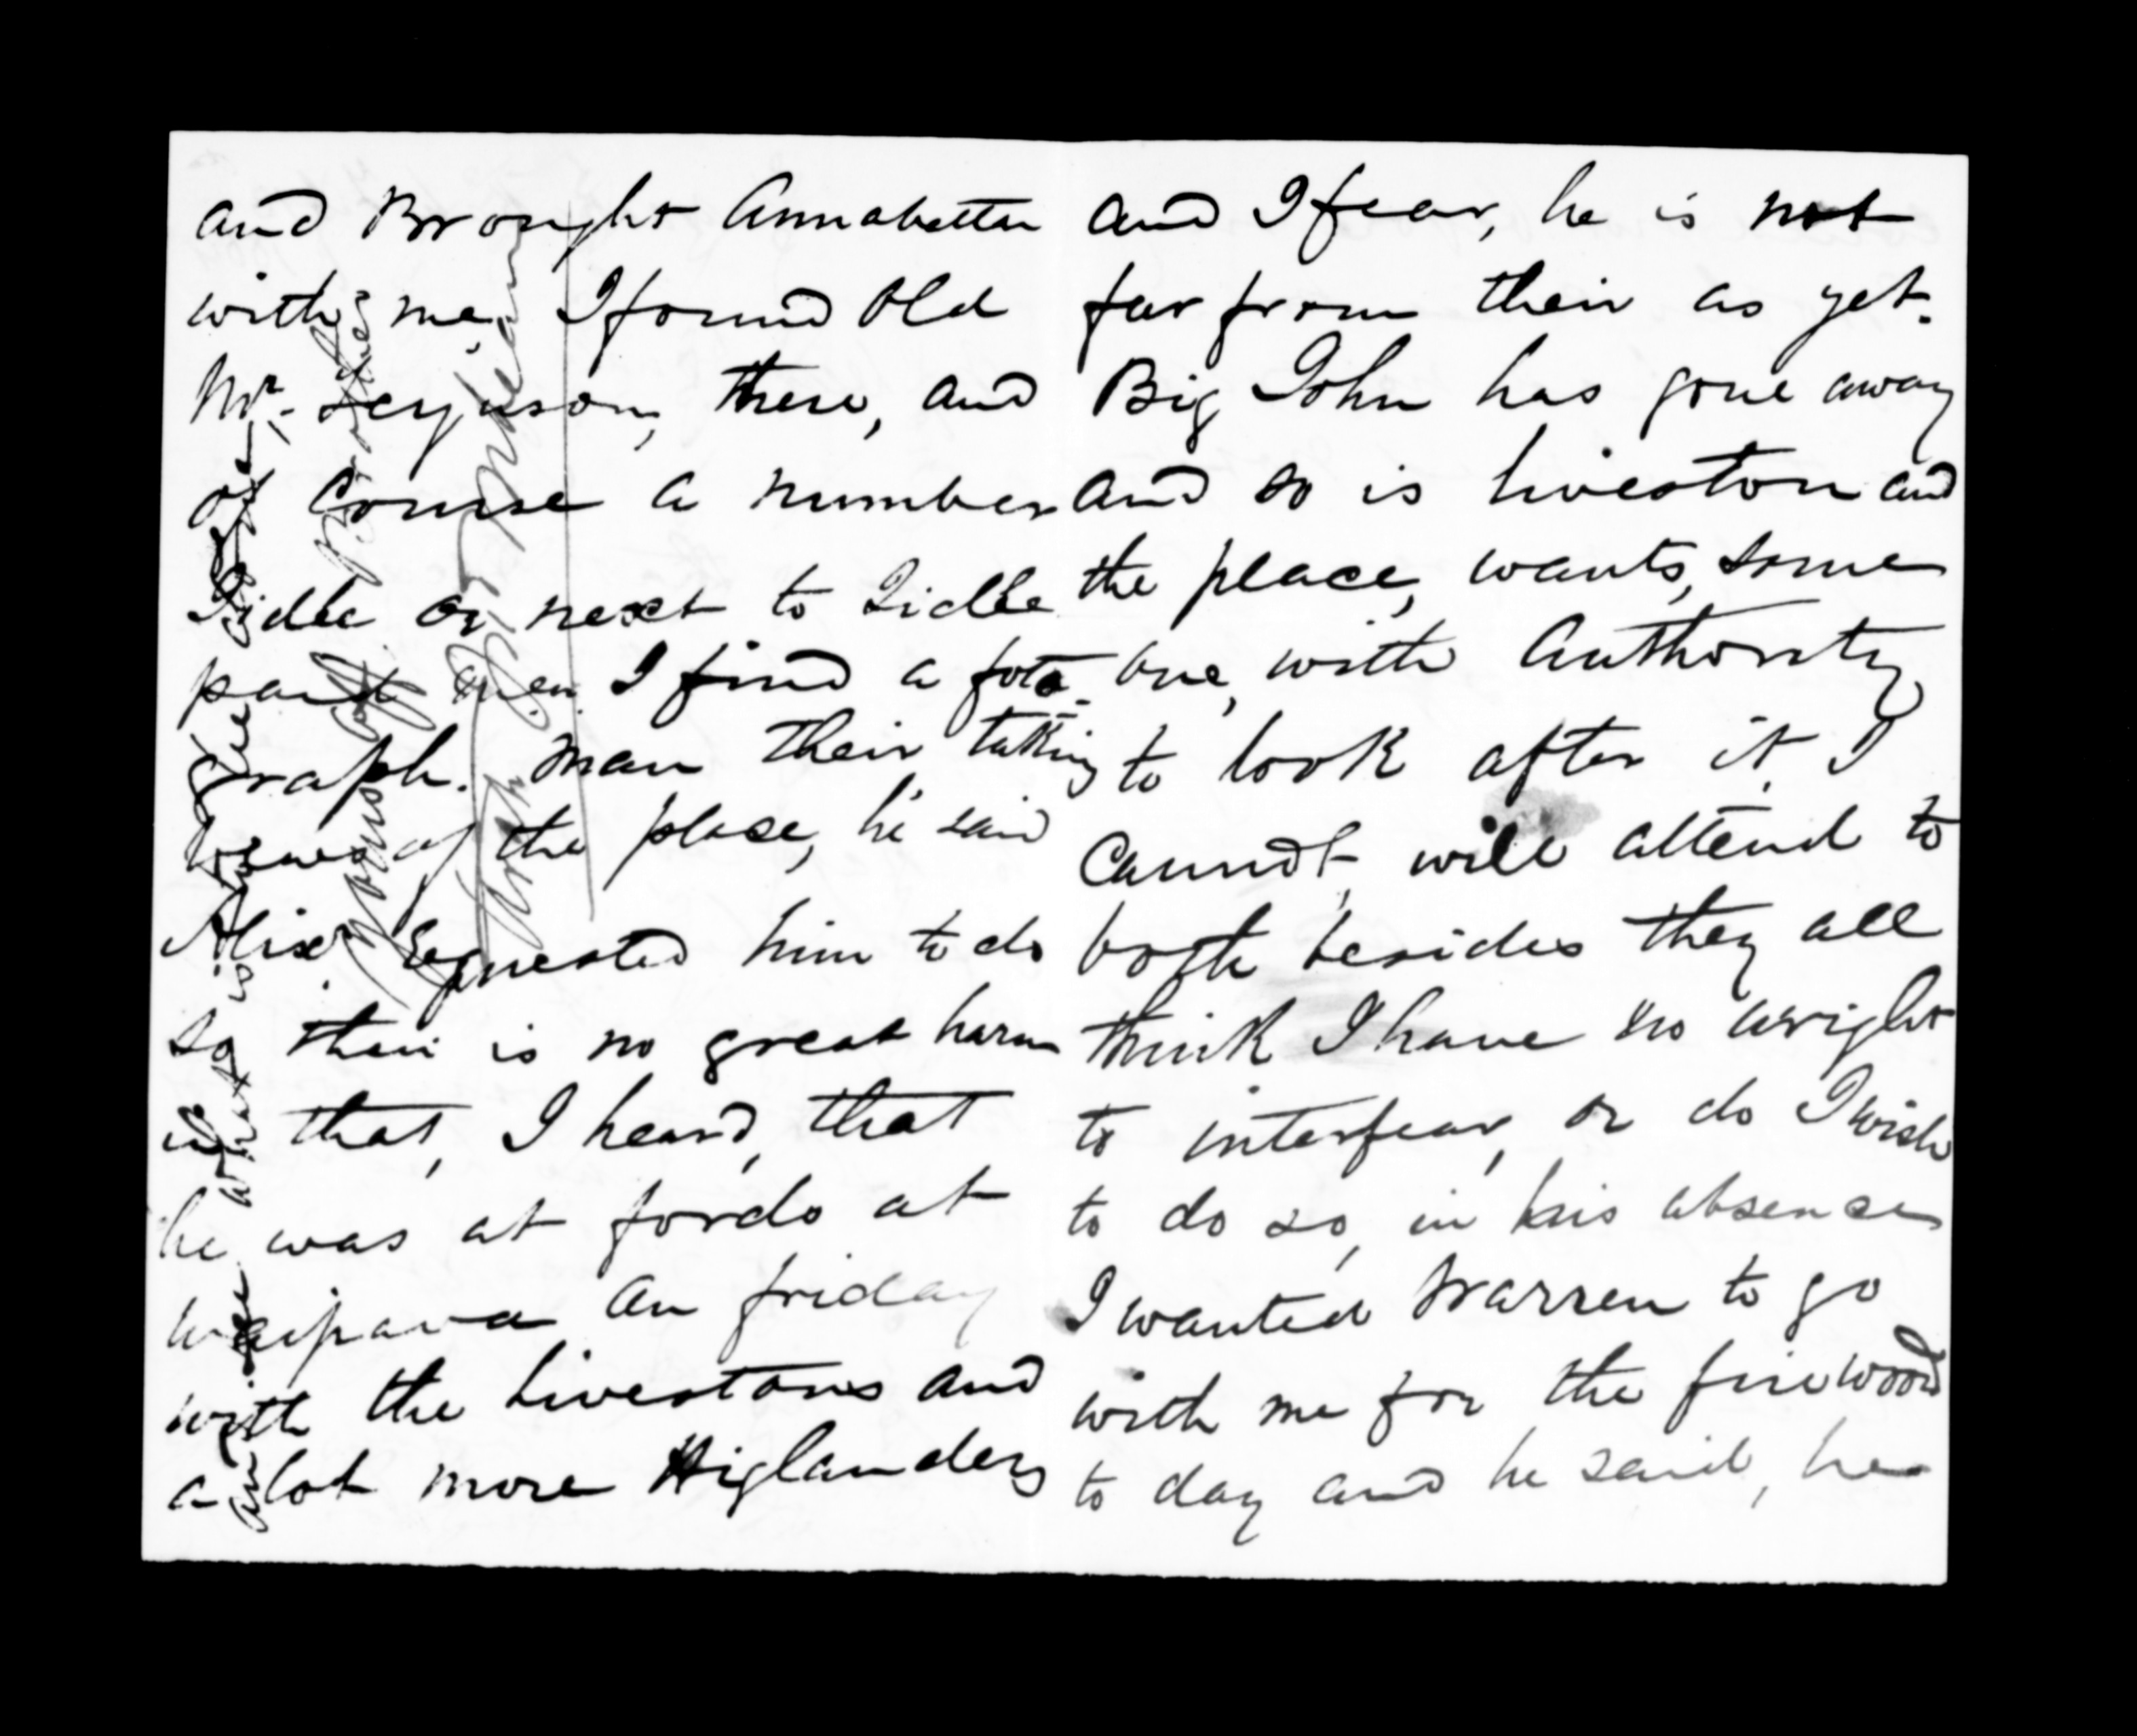 and Brought Annabella
with me, I found Old
Mr. Ferguson, there, and
of Course a number
Iidle or next to Iidle
paid men. I find a foto
graph. man their taking
views of the place, he said
Alixr requested him to do
so their is no great harm
in that, I heard, that
he was at fords at
waipawa an friday
with the Livestons and
a lot more Higlanders
and I fear, he is not
far from their as yet.
Big John has gone away
and so is Liveston and
the place, wants, some
one, with Authority
to look after it, I
Cannot, will attend to
both besides they all
think I have no wright
to interfear, or do I wish
to do so, in his absence
I wanted Warren to go
with me for the firewood
to day and he said, he
and see what is
your Brother
Arch John McLean